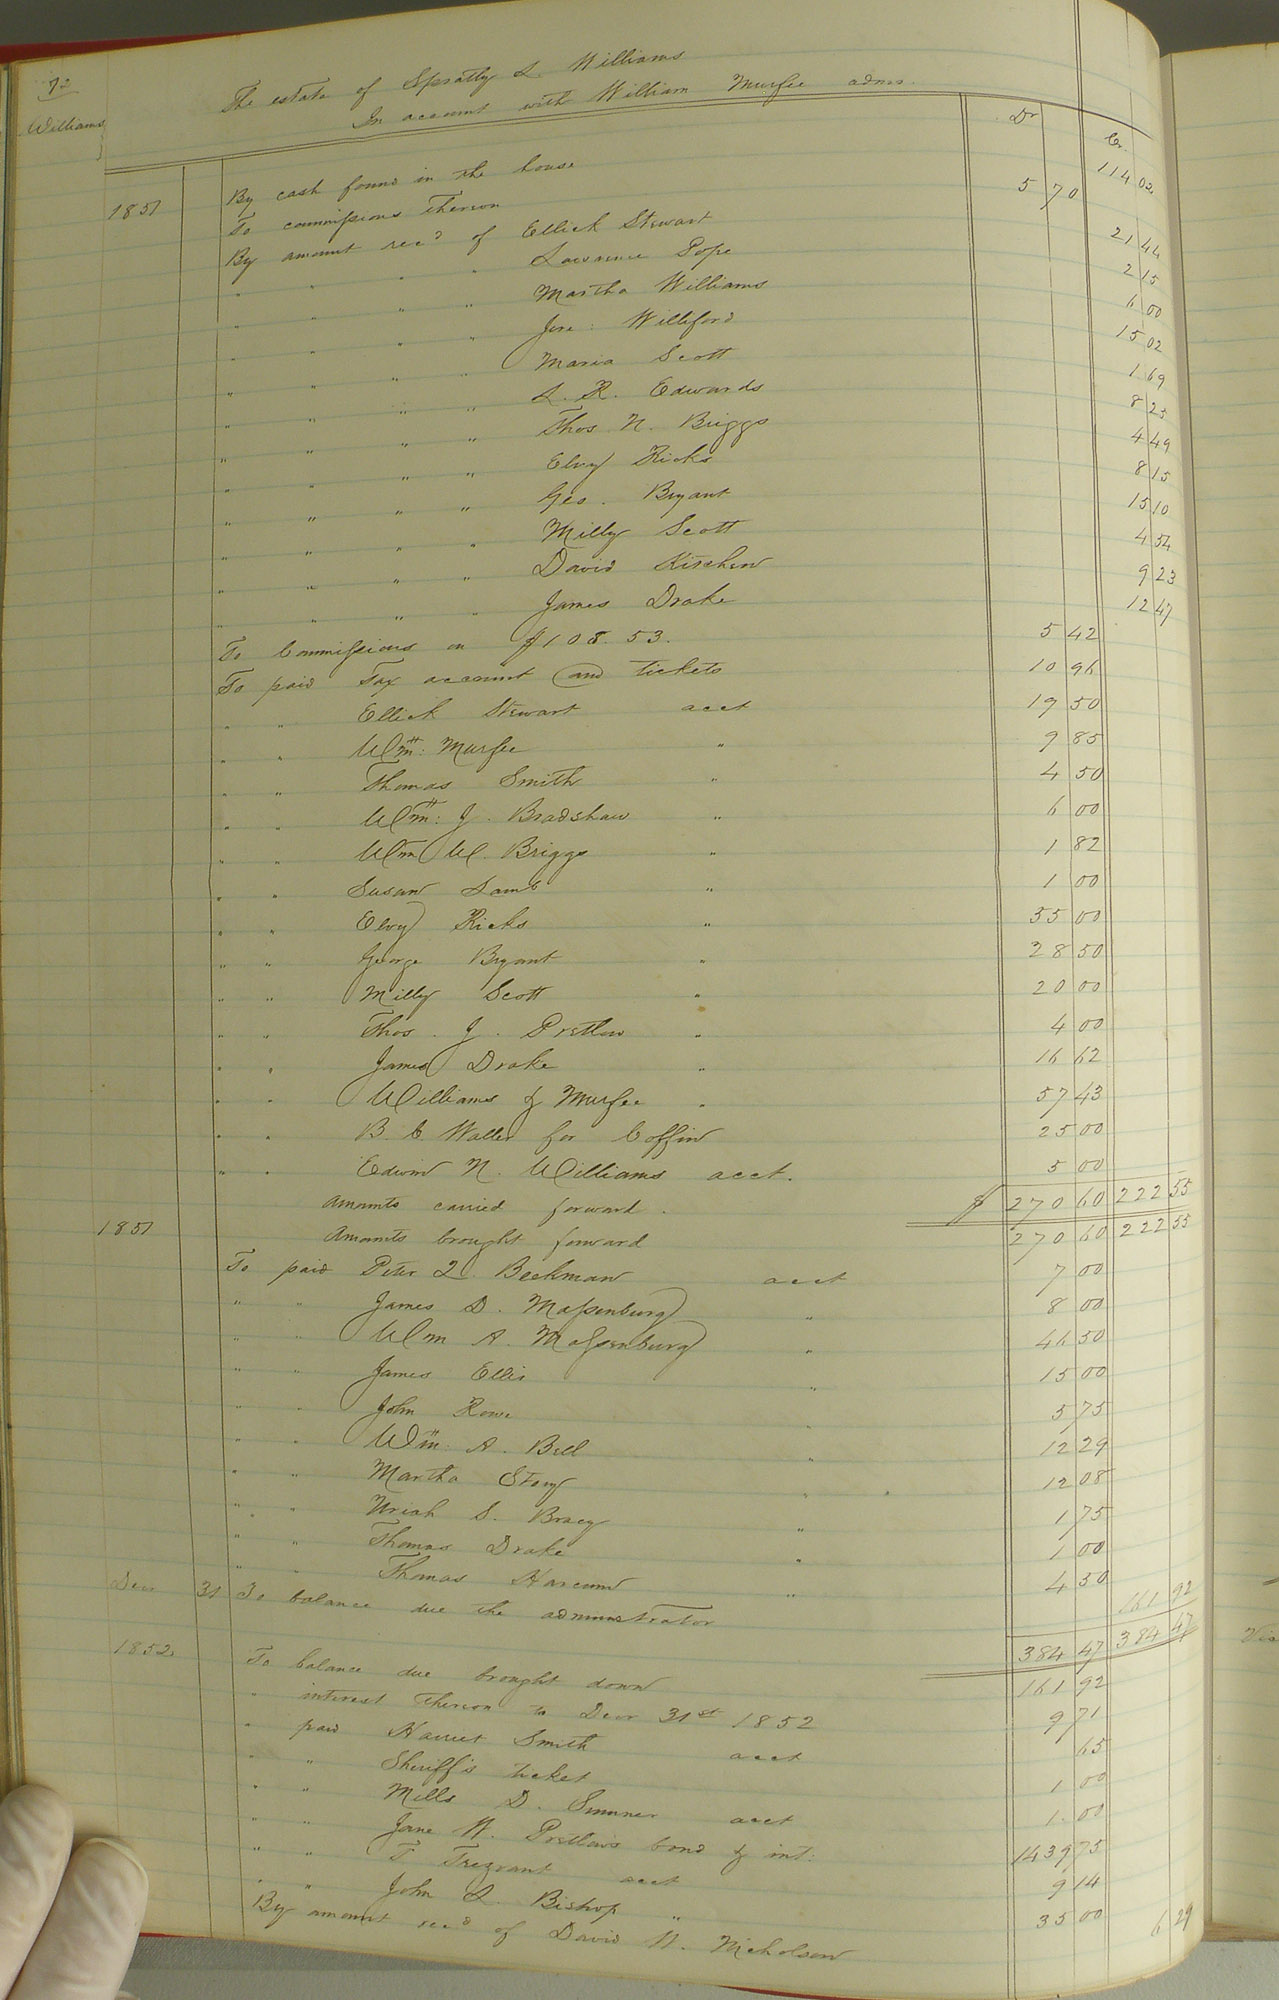 72
Williams
The estate of Spratly L. Williams
In account with William Murfee adms.
Dr Cr.
1851 By cash found in the house 114 02
To commissions thereon 5 70
By amount rec'd of Ellick Stewart 21 44
" " " " Lawrence Pope 2 15
" " " " Martha Williams 6 00
" " " " Jere: Williford 15 02
" " " " Maria Scott 1 69
" " " " L. R. Edwards 8 25
" " " " Thos. N. Briggs 4 49
" " " " Elvy Ricks 8 15
" " " " Geo. Bryant 15 10
" " " " Milly Scott 4 54
" " " " David Kitchen 9 23
" " " " James Drake 12 47
To Commissions on $108.53. 5 42
To paid Tax account and tickets 10 96
" " Ellick Stewart acct 19 50
" " Wm: Murfee " 9 85
" " Thomas Smith " 4 50
" " Wm: J. Bradshaw " 6 00
" " Wm W. Briggs " 1 82
" " Susan Lamb " 1 00
" " Elvy Ricks " 55 00
" " George Bryant " 28 50
" " Milly Scott " 20 00
" " Thos. J. Pretlow " 4 00
" " James Drake " 16 62
" " Williams & Murfee " 57 43
" " B. C Waller for Coffin 25 00
" " Edwin N. Williams acct. 5 00
Amounts carried forward. $ 270 60 222 55
1851 Amounts brought forward 270 60 222 55
To paid Peter Q. Beekman acct 7 00
" " James D. Massenburg " 8 00
" " Wm A. Massenburg " 46 50
" " James Ellis " 15 00
" " John Rowe " 5 75
" " Wm. A. Bell " 12 29
" " Martha Story " 12 08
" " Uriah S. Bracy " 1 75
" " Thomas Drake " 1 00
" " Thomas Harcum " 4 50
Decr 31 To balance due the administrator 161 92
384 47 384 47
1852. To balance due brought down 161 92
" interest thereon to Decr 31st 1852 9 71
" paid Harriet Smith acct 65
" " Sheriff's ticket 1 00
" " Mills D. Sumner acct 1. 00
" " Jane W. Pretlow's bond & int: 1439 75
" " T. Trezvant acct 9 14
" " John L. Bishop " 35 00
By amount rec'd of David W. Nicholson 6 29